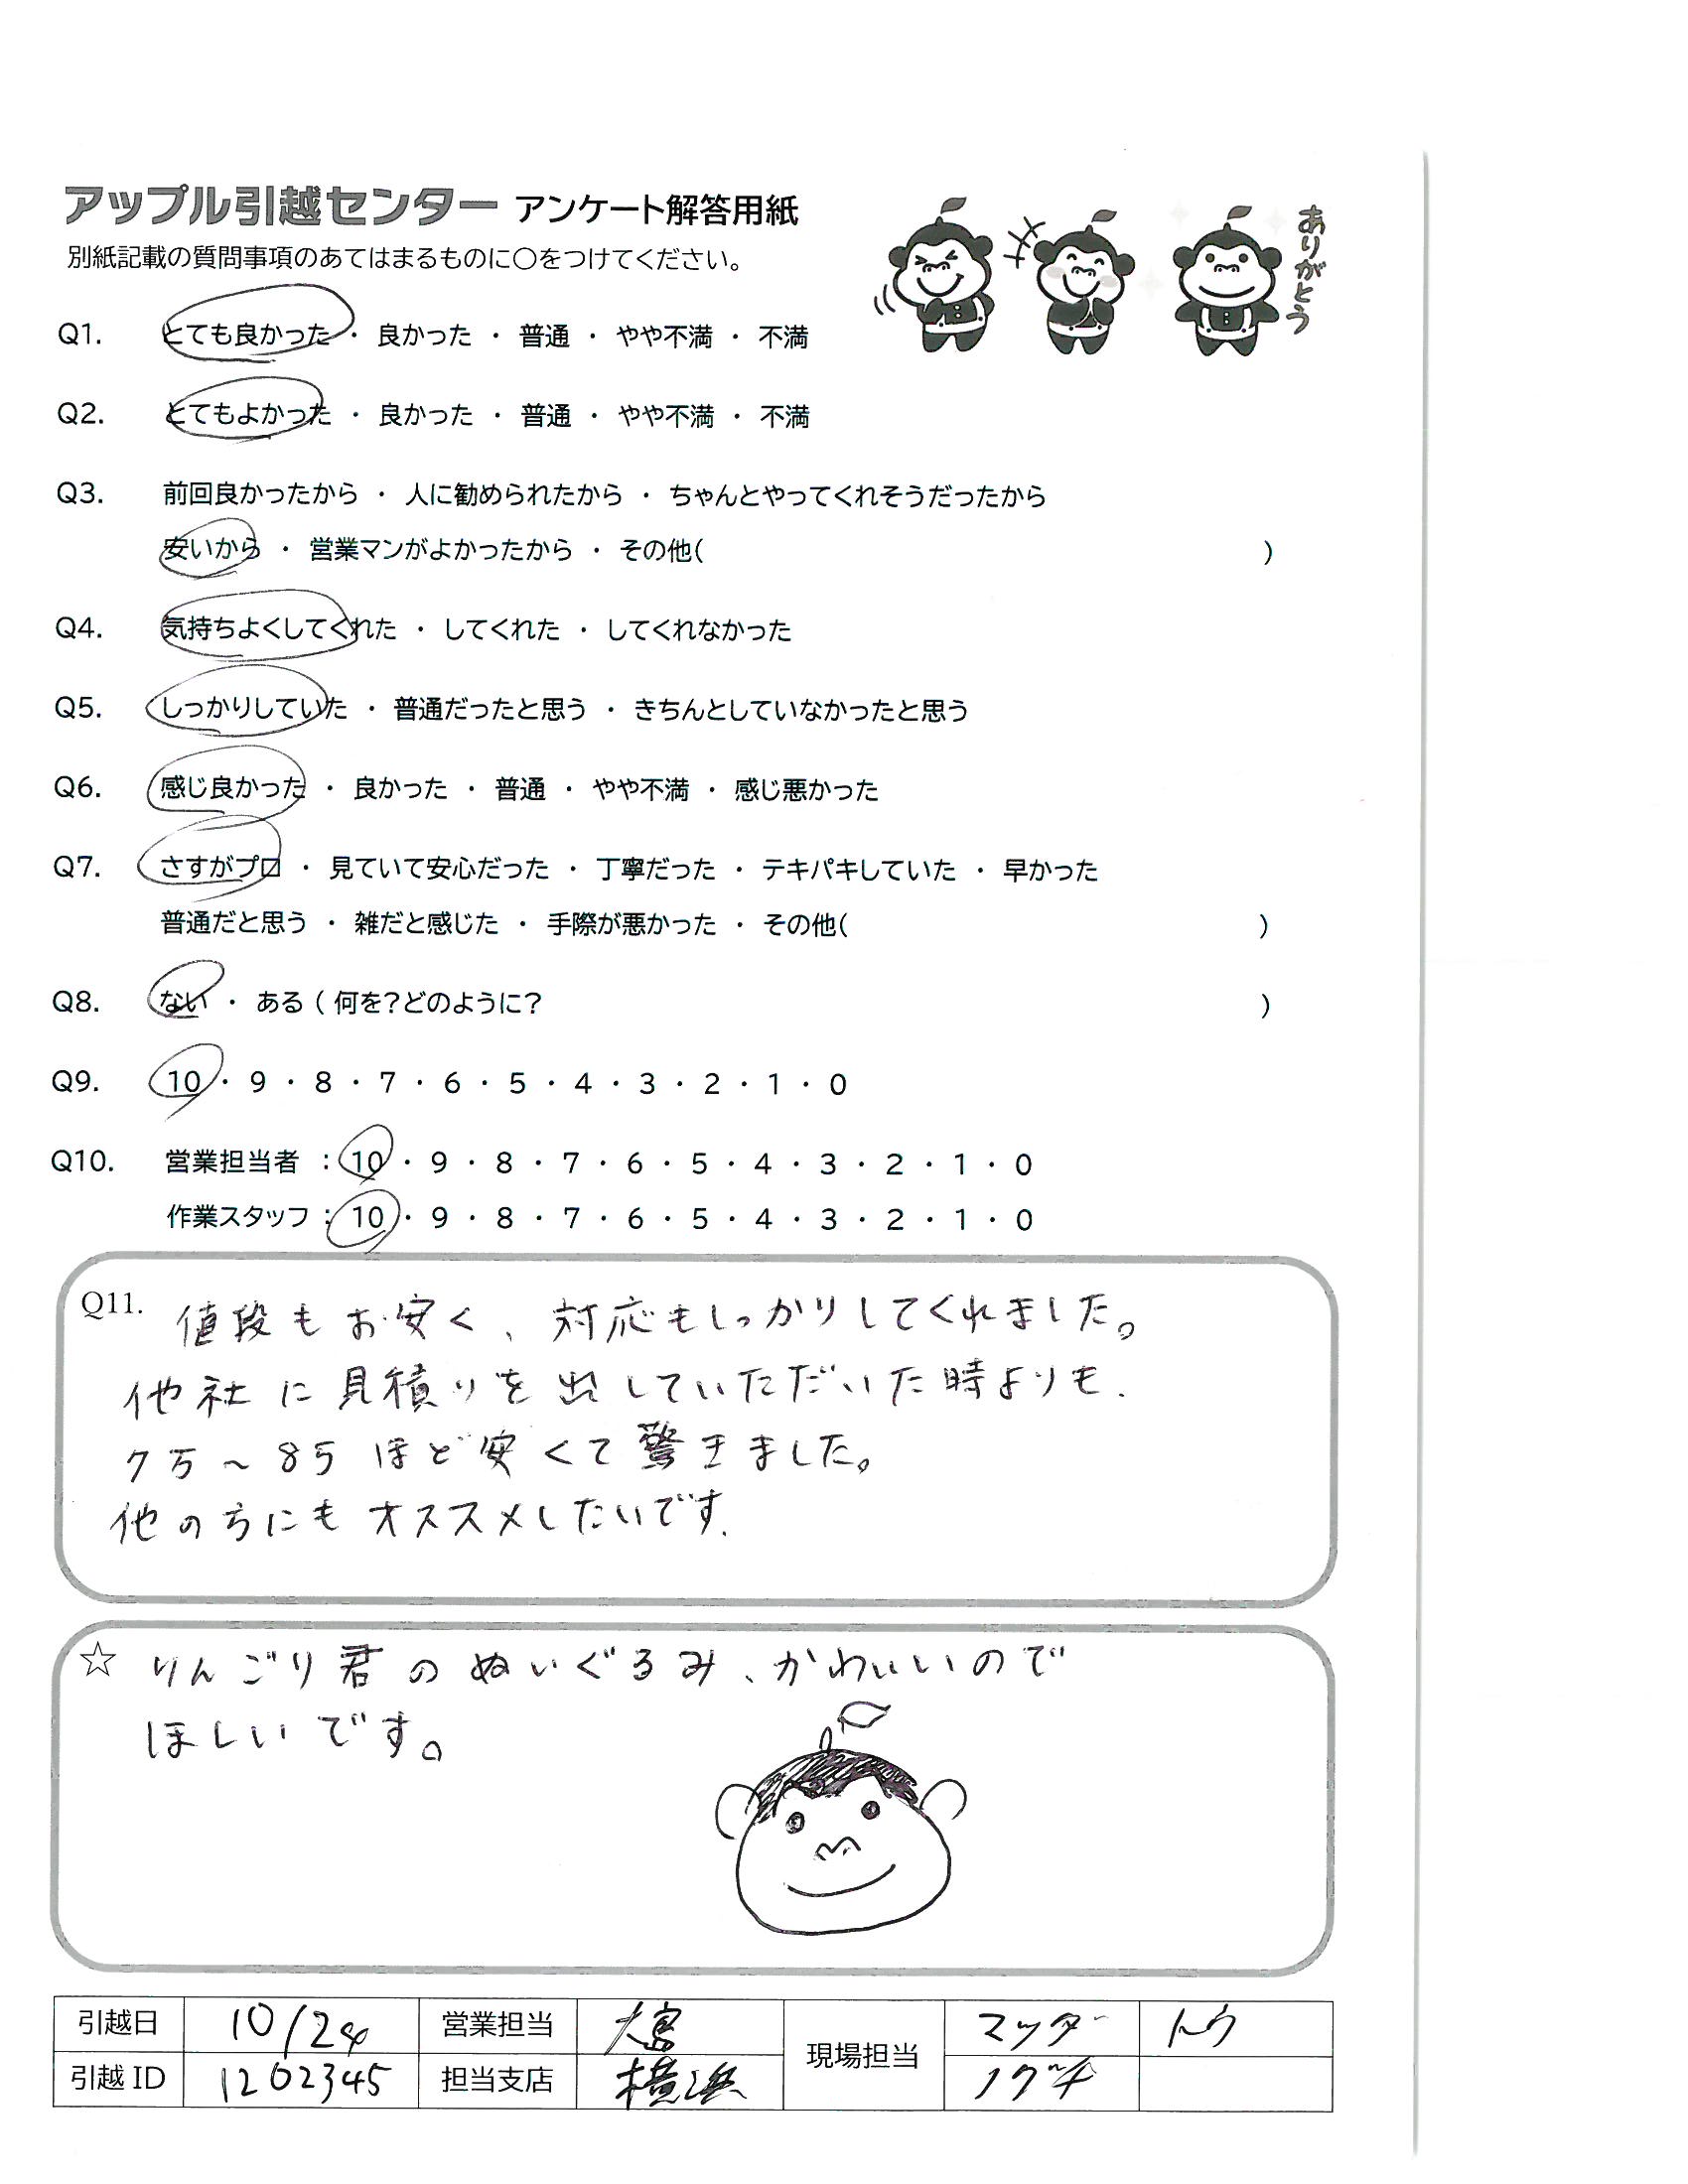 アップル引越センター アンケート解答用紙
別紙記載の質問事項のあてはまるものに〇をつけてください。
ありがとう
Q1. とても良かった ・ 良かった ・ 普通 ・ やや不満 ・ 不満
Q2. とてもよかった ・ 良かった ・ 普通 ・ やや不満 ・ 不満
Q3. 前回良かったから ・ 人に勧められたから ・ ちゃんとやってくれそうだったから
安いから ・ 営業マンがよかったから ・ その他( )
Q4. 気持ちよくしてくれた ・ してくれた ・ してくれなかった
Q5. しっかりしていた ・ 普通だったと思う ・ きちんとしていなかったと思う
Q6. 感じ良かった ・ 良かった ・ 普通 ・ やや不満 ・ 感じ悪かった
Q7. さすがプロ ・ 見ていて安心だった ・ 丁寧だった ・ テキパキしていた ・ 早かった
普通だと思う ・ 雑だと感じた ・ 手際が悪かった ・ その他( )
Q8. ない ・ ある ( 何を？どのように？ )
Q9. 10 ・ 9 ・ 8 ・ 7 ・ 6 ・ 5 ・ 4 ・ 3 ・ 2 ・ 1 ・ 0
Q10. 営業担当者 : 10 ・ 9 ・ 8 ・ 7 ・ 6 ・ 5 ・ 4 ・ 3 ・ 2 ・ 1 ・ 0
作業スタッフ : 10 ・ 9 ・ 8 ・ 7 ・ 6 ・ 5 ・ 4 ・ 3 ・ 2 ・ 1 ・ 0
Q11. 値段もお安く、対応もしっかりしてくれました。
他社に見積りを出していただいた時よりも、
7万～8万ほど安くて驚きました。
他の方にもオススメしたいです.
☆ りんごり君のぬいぐるみ、かわいいので
ほしいです。
引越日 10/24 営業担当 大宮 現場担当 マツダ トウ
引越ID 1202345 担当支店 横浜 ノグチ